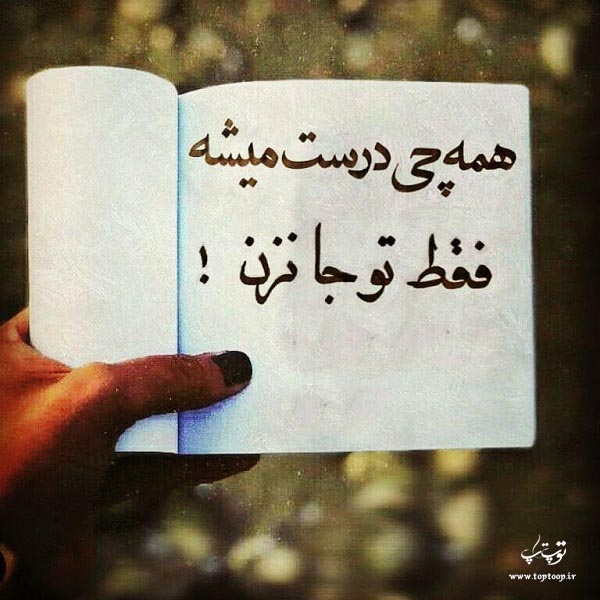 همه چی درست میشه
فقط تو جا نزن !
توپ تاپ
www.toptoop.ir